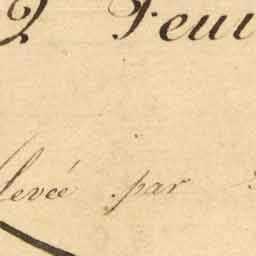 2 Feui
levée par